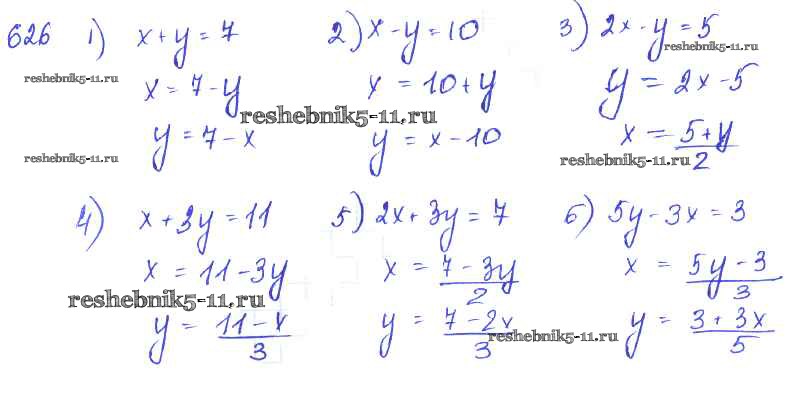 626 1) x + y = 7 2) x - y = 10 3) 2x - y = 5
reshebnik5-11.ru
reshebnik5-11.ru x = 7 - y x = 10 + y y = 2x - 5
reshebnik5-11.ru
y = 7 - x y = x - 10 x = (5 + y)/2
reshebnik5-11.ru reshebnik5-11.ru
4) x + 3y = 11 5) 2x + 3y = 7 6) 5y - 3x = 3
x = 11 - 3y x = (7 - 3y)/2 x = (5y - 3)/3
reshebnik5-11.ru
y = (11 - x)/3 y = (7 - 2x)/3 y = (3 + 3x)/5
reshebnik5-11.ru